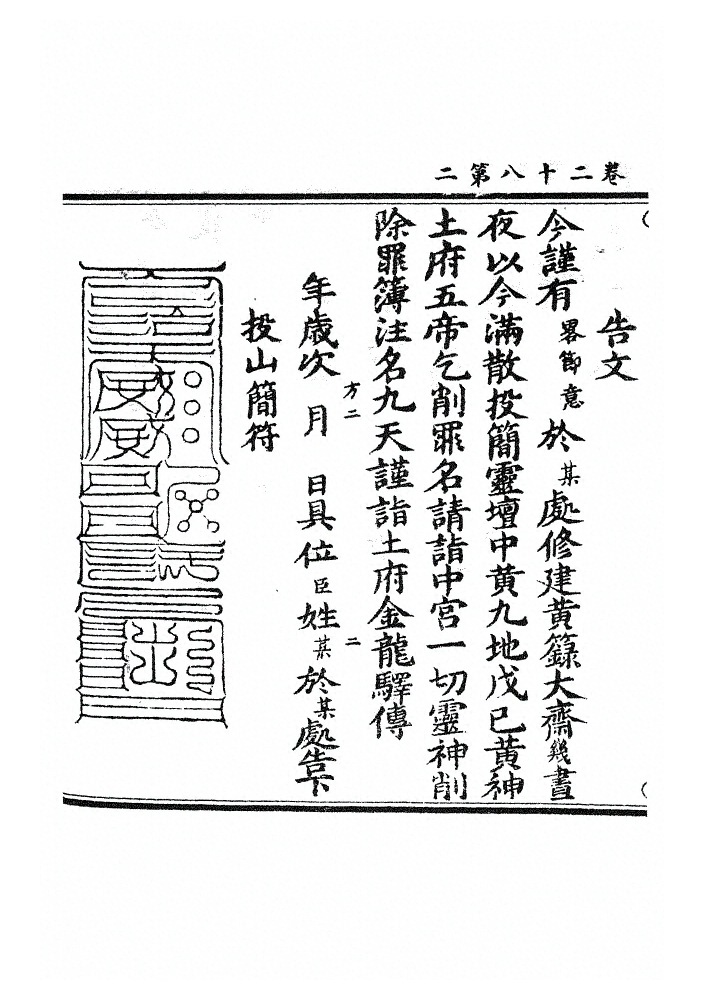 卷二十八第二
告文
今謹有畧節意於某處修建黃籙大齋幾晝
夜以今滿散投簡靈壇中黃九地戊己黃神
土府五帝乞削罪名請詣中宮一切靈神削
除罪簿注名九天謹詣土府金龍驛傳
方二 二
年歲次 月 日具位臣姓某於某處告下
投山簡符